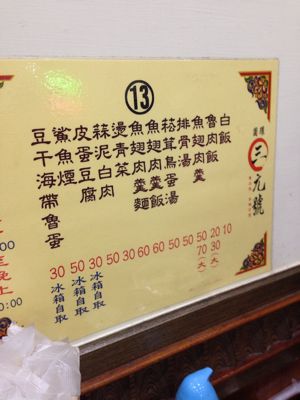 ⑬
白飯 10
魯肉飯 20 30(大)
魚翅肉羹 50 70(大)
排骨湯 50
菘茸鳥蛋湯 50
魚翅肉羹飯 60
魚翅肉羹麵 60
燙青菜 30
蒜泥白肉 50 冰箱自取
皮蛋豆腐 30 冰箱自取
鯊魚煙 50
豆干海帶魯蛋 30 冰箱自取
三九號